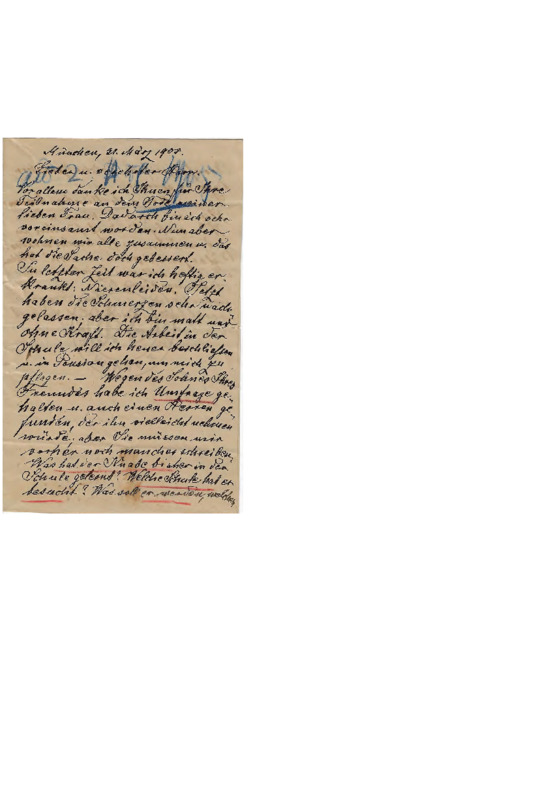 München, 31. März 1905.
Lieber u. verehrter Herr.
Vor allem danke ich Ihnen für Ihre
Teilnahme an dem Tode meiner
lieben Frau. Dadurch bin ich sehr
vereinsamt worden. Nun aber
wohnen wir alle zusammen u. das
hat die Sache doch gebessert.
In letzter Zeit war ich heftig er-
krankt: Nierenleiden. Jetzt
haben die Schmerzen sehr nach-
gelassen, aber ich bin matt und
ohne Kraft. Die Arbeit in der
Schule will ich heuer beschließen
u. in Pension gehen, um mich zu
pflegen. — Wegen des Sohnes Ihres
Freundes habe ich Umfrage ge-
halten u. auch einen Herren ge-
funden, der ihn vielleicht nehmen
würde, aber Sie müssen mir
vorher noch manches schreiben.
Was hat der Knabe bisher in der
Schule gelernt? Welche Schule hat er
besucht? Was soll er werden, welchen